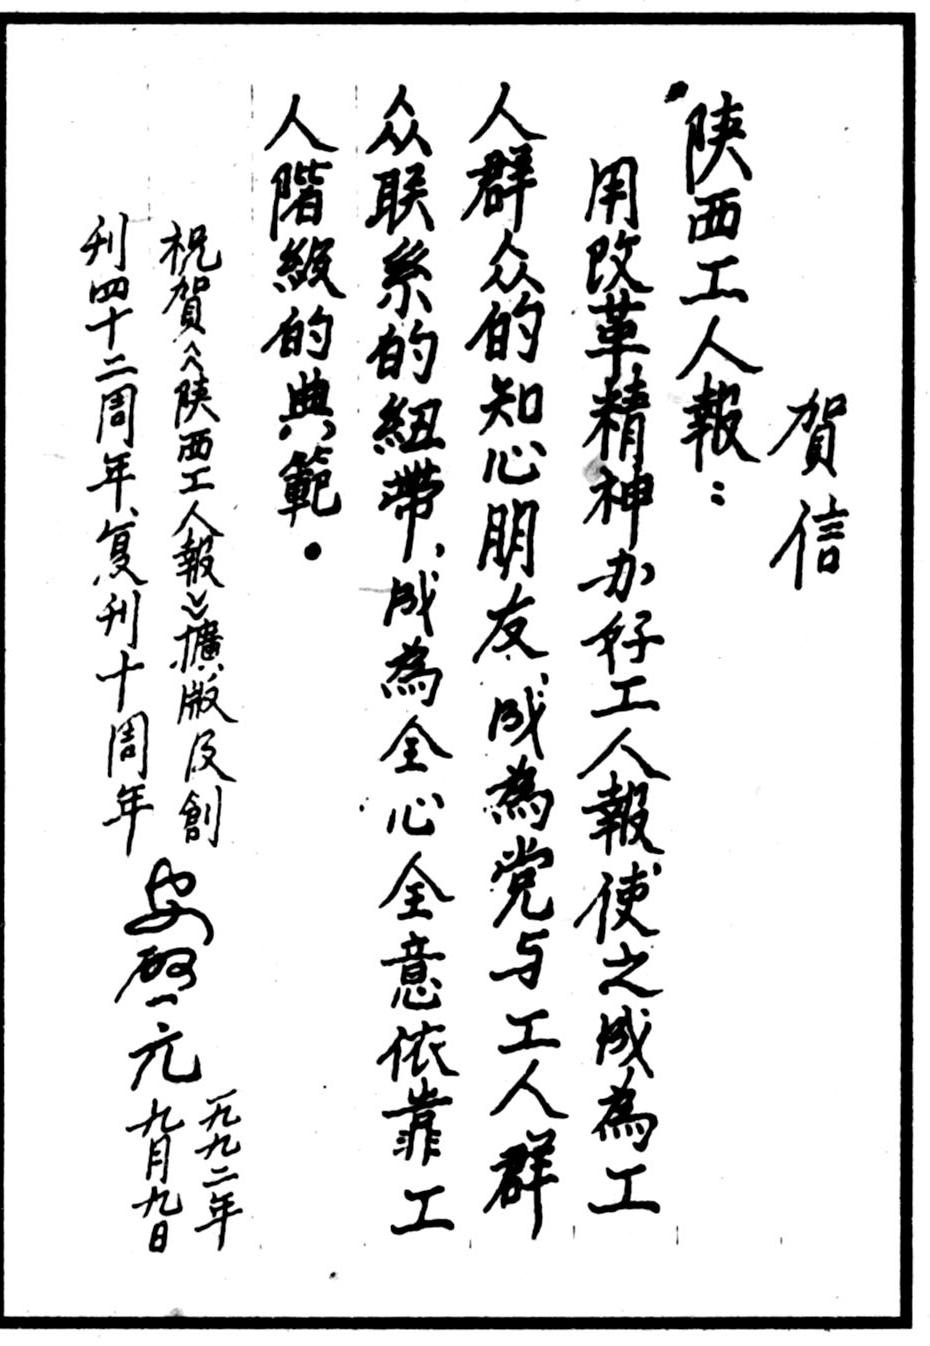 賀信
陕西工人報：
用改革精神办好工人報，使之成為工
人群众的知心朋友，成為党与工人群
众联系的紐帶，成為全心全意依靠工
人階級的典範。
祝賀《陕西工人報》擴版及創
刊四十二周年、复刊十周年
安啓元
一九九二年
九月九日